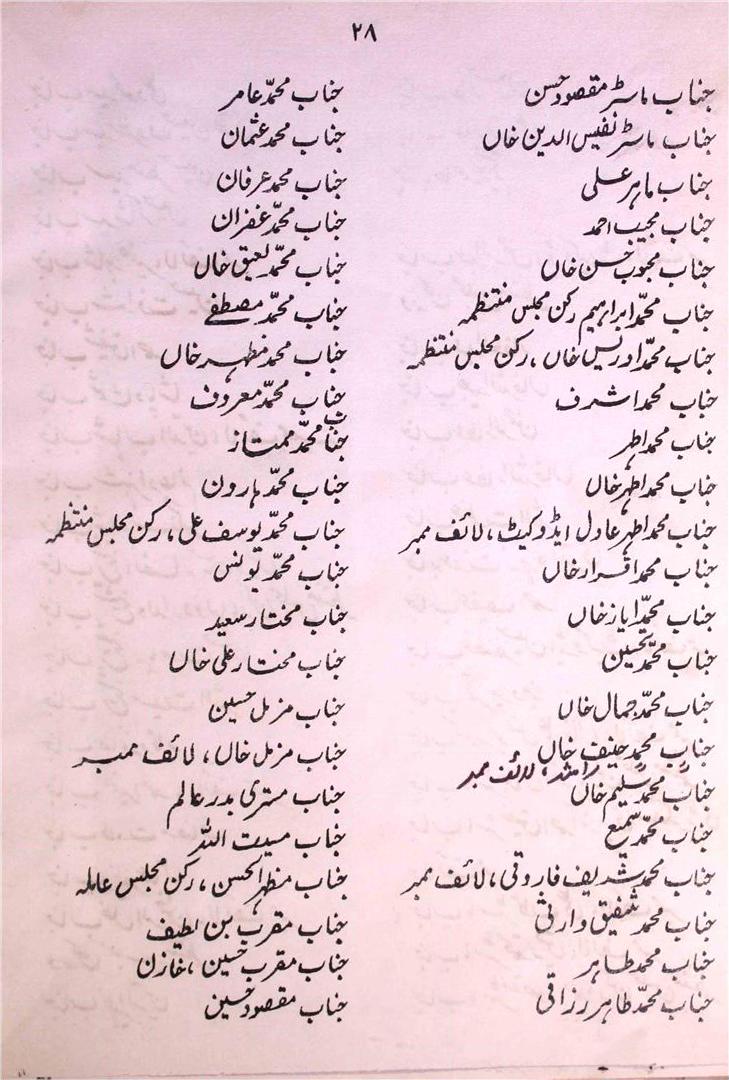 ۲۸
جناب ماسٹر مقصود حسن
جناب ماسٹر نفیس الدین خاں
جناب ماہر علی
جناب مجیب احمد
جناب محبوب حسن خاں
جناب محمّد ابراہیم رکن مجلس منتظمہ
جناب محمّد ادریس خاں، رکن مجلس منتظمہ
جناب محمد اشرف
جناب محمد اطہر
جناب محمد اطہر خاں
جناب محمد اطہر عادل ایڈوکیٹ، لائف ممبر
جناب محمد اقرار خاں
جناب محمّد ایاز خاں
جناب محمّد تحسین
جناب محمّد جمال خاں
جناب محمد حنیف خاں
جناب محمد راشد، لائف ممبر
جناب محمّد سلیم خاں
جناب محمّد سمیع
جناب محمد شریف فاروقی، لائف ممبر
جناب محمد شفیق وارثی
جناب محمد طاہر
جناب محمّد طاہر رزاقی
جناب محمّد عامر
جناب محمد عثمان
جناب محمد عرفان
جناب محمّد غفران
جناب محمّد لعیق خاں
جناب محمّد مصطفےٰ
جناب محمد مظہر خاں
جناب محمّد معروف
جناب محمّد ممتاز
جناب محمّد ہارون
جناب محمّد یوسف علی، رکن مجلس منتظمہ
جناب محمّد یونس
جناب مختار سعید
جناب مختار علی خاں
جناب مزمل حسین
جناب مزمل خاں، لائف ممبر
جناب مستری بدر عالم
جناب مسیت اللہ
جناب مظہر الحسن، رکن مجلس عاملہ
جناب مقرب بن لطیف
جناب مقرب حسین، خازن
جناب مقصود حسین